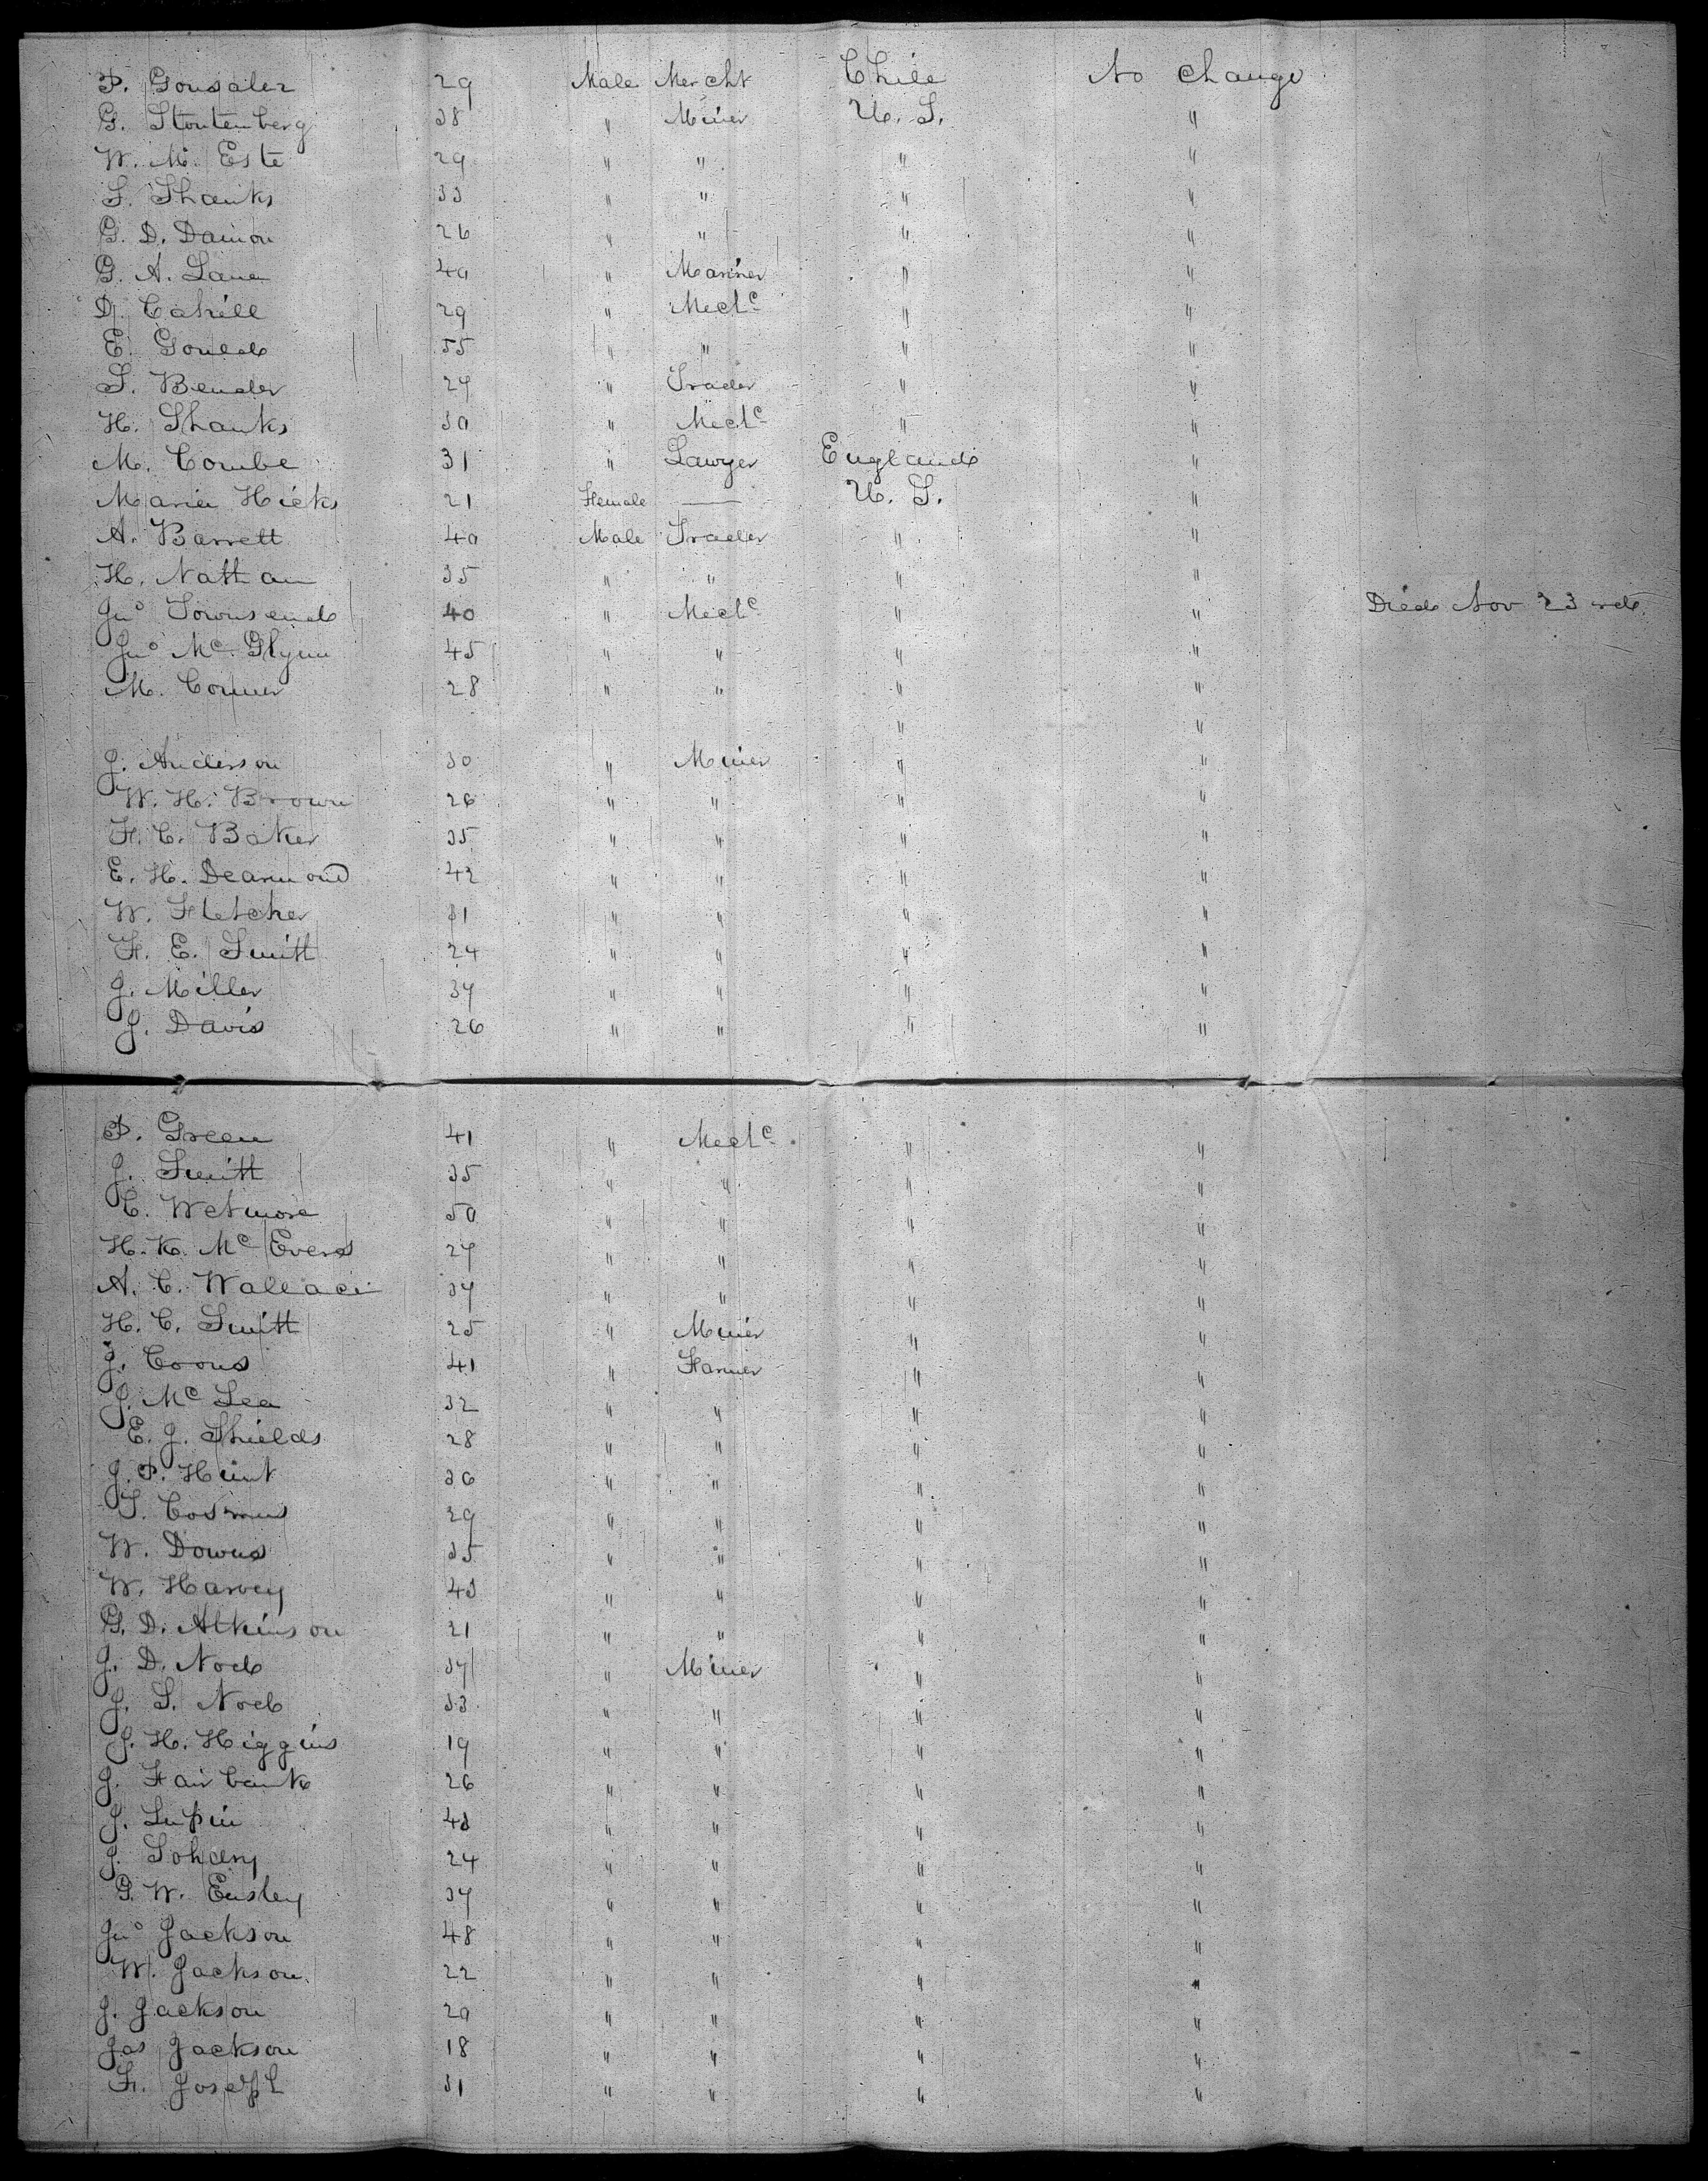 P. Gonsalez 29 Male Mercht Chile No change
G. Stoutenberg 38 " Miner U. S. "
W. M. Este 29 " " " "
S. Shanks 33 " " " "
G. D. Damon 26 " " " "
G. A. Lane 40 " Mariner " "
D. Cahill 29 " Mechc " "
E. Gould 55 " " " "
S. Bender 27 " Trader " "
H. Shanks 30 " Mechc " "
M. Combe 31 " Lawyer England "
Maria Hicks 21 Female — U. S. "
A. Barrett 40 Male Trader " "
H. Nathan 35 " " " "
Jno Townsend 40 " Mechc " " Died Nov 23rd
Jno Mc Glynn 45 " " " "
M. Conner 28 " " " "
" "
J. Anderson 30 " Miner " "
W. H. Brown 26 " " " "
F. C. Baker 35 " " " "
E. H. Dearmond 42 " " " "
W. Fletcher 31 " " " "
F. E. Smith 24 " " " "
J. Miller 37 " " " "
J. Davis 26 " " " "
P. Green 41 " Mechc " "
J. Smith 35 " " " "
C. Wetmore 50 " " " "
H. K. Mc Evers 27 " " " "
A. C. Wallace 37 " " " "
H. C. Smith 25 " Miner " "
J. Coons 41 " Farmer " "
J. Mc Lea 32 " " " "
E. J. Shields 28 " " " "
J. P. Hunt 36 " " " "
T. Cosmus 29 " " " "
W. Downs 35 " " " "
W. Harvey 43 " " " "
G. D. Atkinson 21 " " " "
J. D. Noel 37 " Miner " "
J. S. Noel 33 " " " "
J. H. Higgins 19 " " " "
J. Fairbank 26 " " " "
J. Lupin 43 " " " "
J. 24 " " " "
G. W. Ensley 37 " " " "
Jno Jackson 48 " " " "
W. Jackson 22 " " " "
J. Jackson 20 " " " "
Jas Jackson 18 " " " "
F. Joseph 31 " " " "